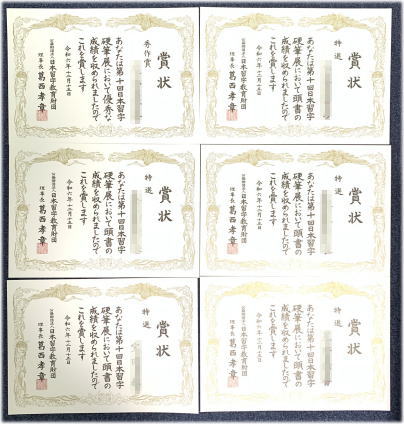 賞状
秀作賞
あなたは第十回日本習字
硬筆展において優秀な
成績を収められましたので
これを賞します
令和六年十二月十五日
公益財団法人日本習字教育財団
理事長 葛西孝章
賞状
特選
あなたは第十回日本習字
硬筆展において頭書の
成績を収められましたので
これを賞します
令和六年十二月十五日
公益財団法人日本習字教育財団
理事長 葛西孝章
賞状
特選
あなたは第十回日本習字
硬筆展において頭書の
成績を収められましたので
これを賞します
令和六年十二月十五日
公益財団法人日本習字教育財団
理事長 葛西孝章
賞状
特選
あなたは第十回日本習字
硬筆展において頭書の
成績を収められましたので
これを賞します
令和六年十二月十五日
公益財団法人日本習字教育財団
理事長 葛西孝章
賞状
特選
あなたは第十回日本習字
硬筆展において頭書の
成績を収められましたので
これを賞します
令和六年十二月十五日
公益財団法人日本習字教育財団
理事長 葛西孝章
賞状
特選
あなたは第十回日本習字
硬筆展において頭書の
成績を収められましたので
これを賞します
令和六年十二月十五日
公益財団法人日本習字教育財団
理事長 葛西孝章